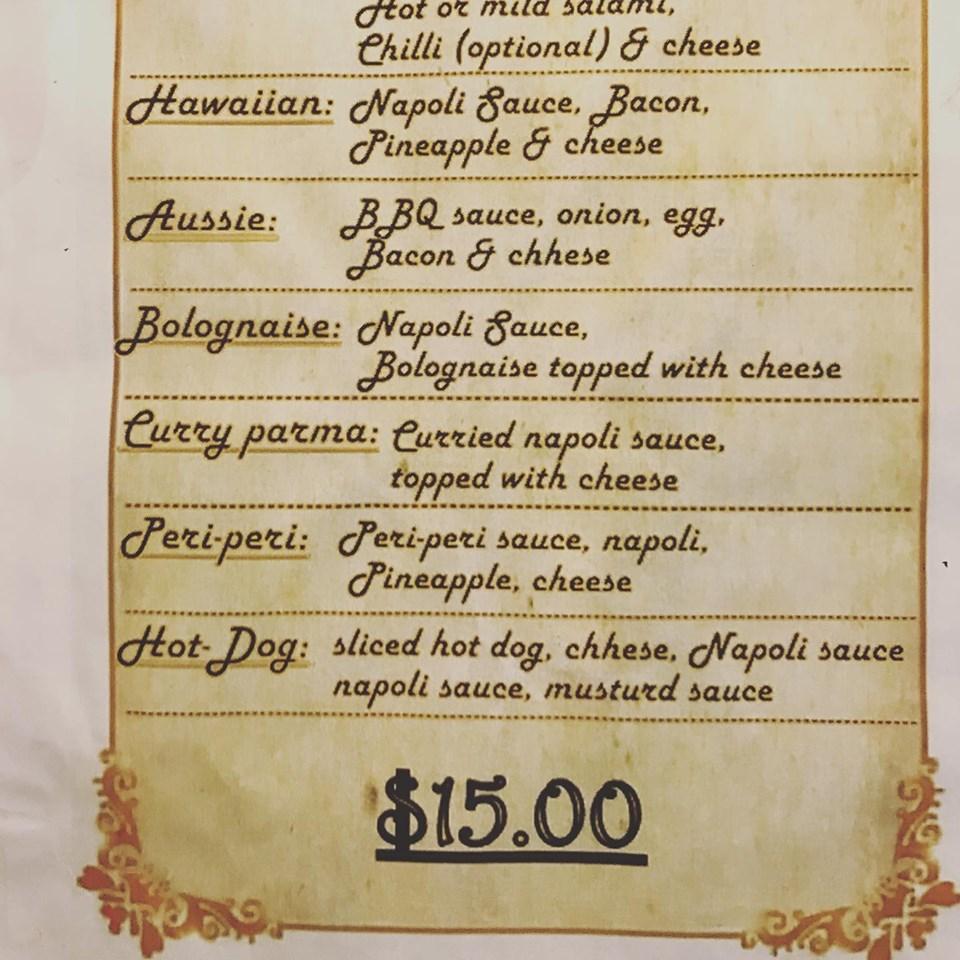 Hot or mild salami,
Chilli (optional) & cheese
Hawaiian: Napoli Sauce, Bacon,
Pineapple & cheese
Aussie: BBQ sauce, onion, egg,
Bacon & chhese
Bolognaise: Napoli Sauce,
Bolognaise topped with cheese
Curry parma: Curried napoli sauce,
topped with cheese
Peri-peri: Peri-peri sauce, napoli,
Pineapple, cheese
Hot-Dog: sliced hot dog, chhese, Napoli sauce
napoli sauce, musturd sauce
$15.00